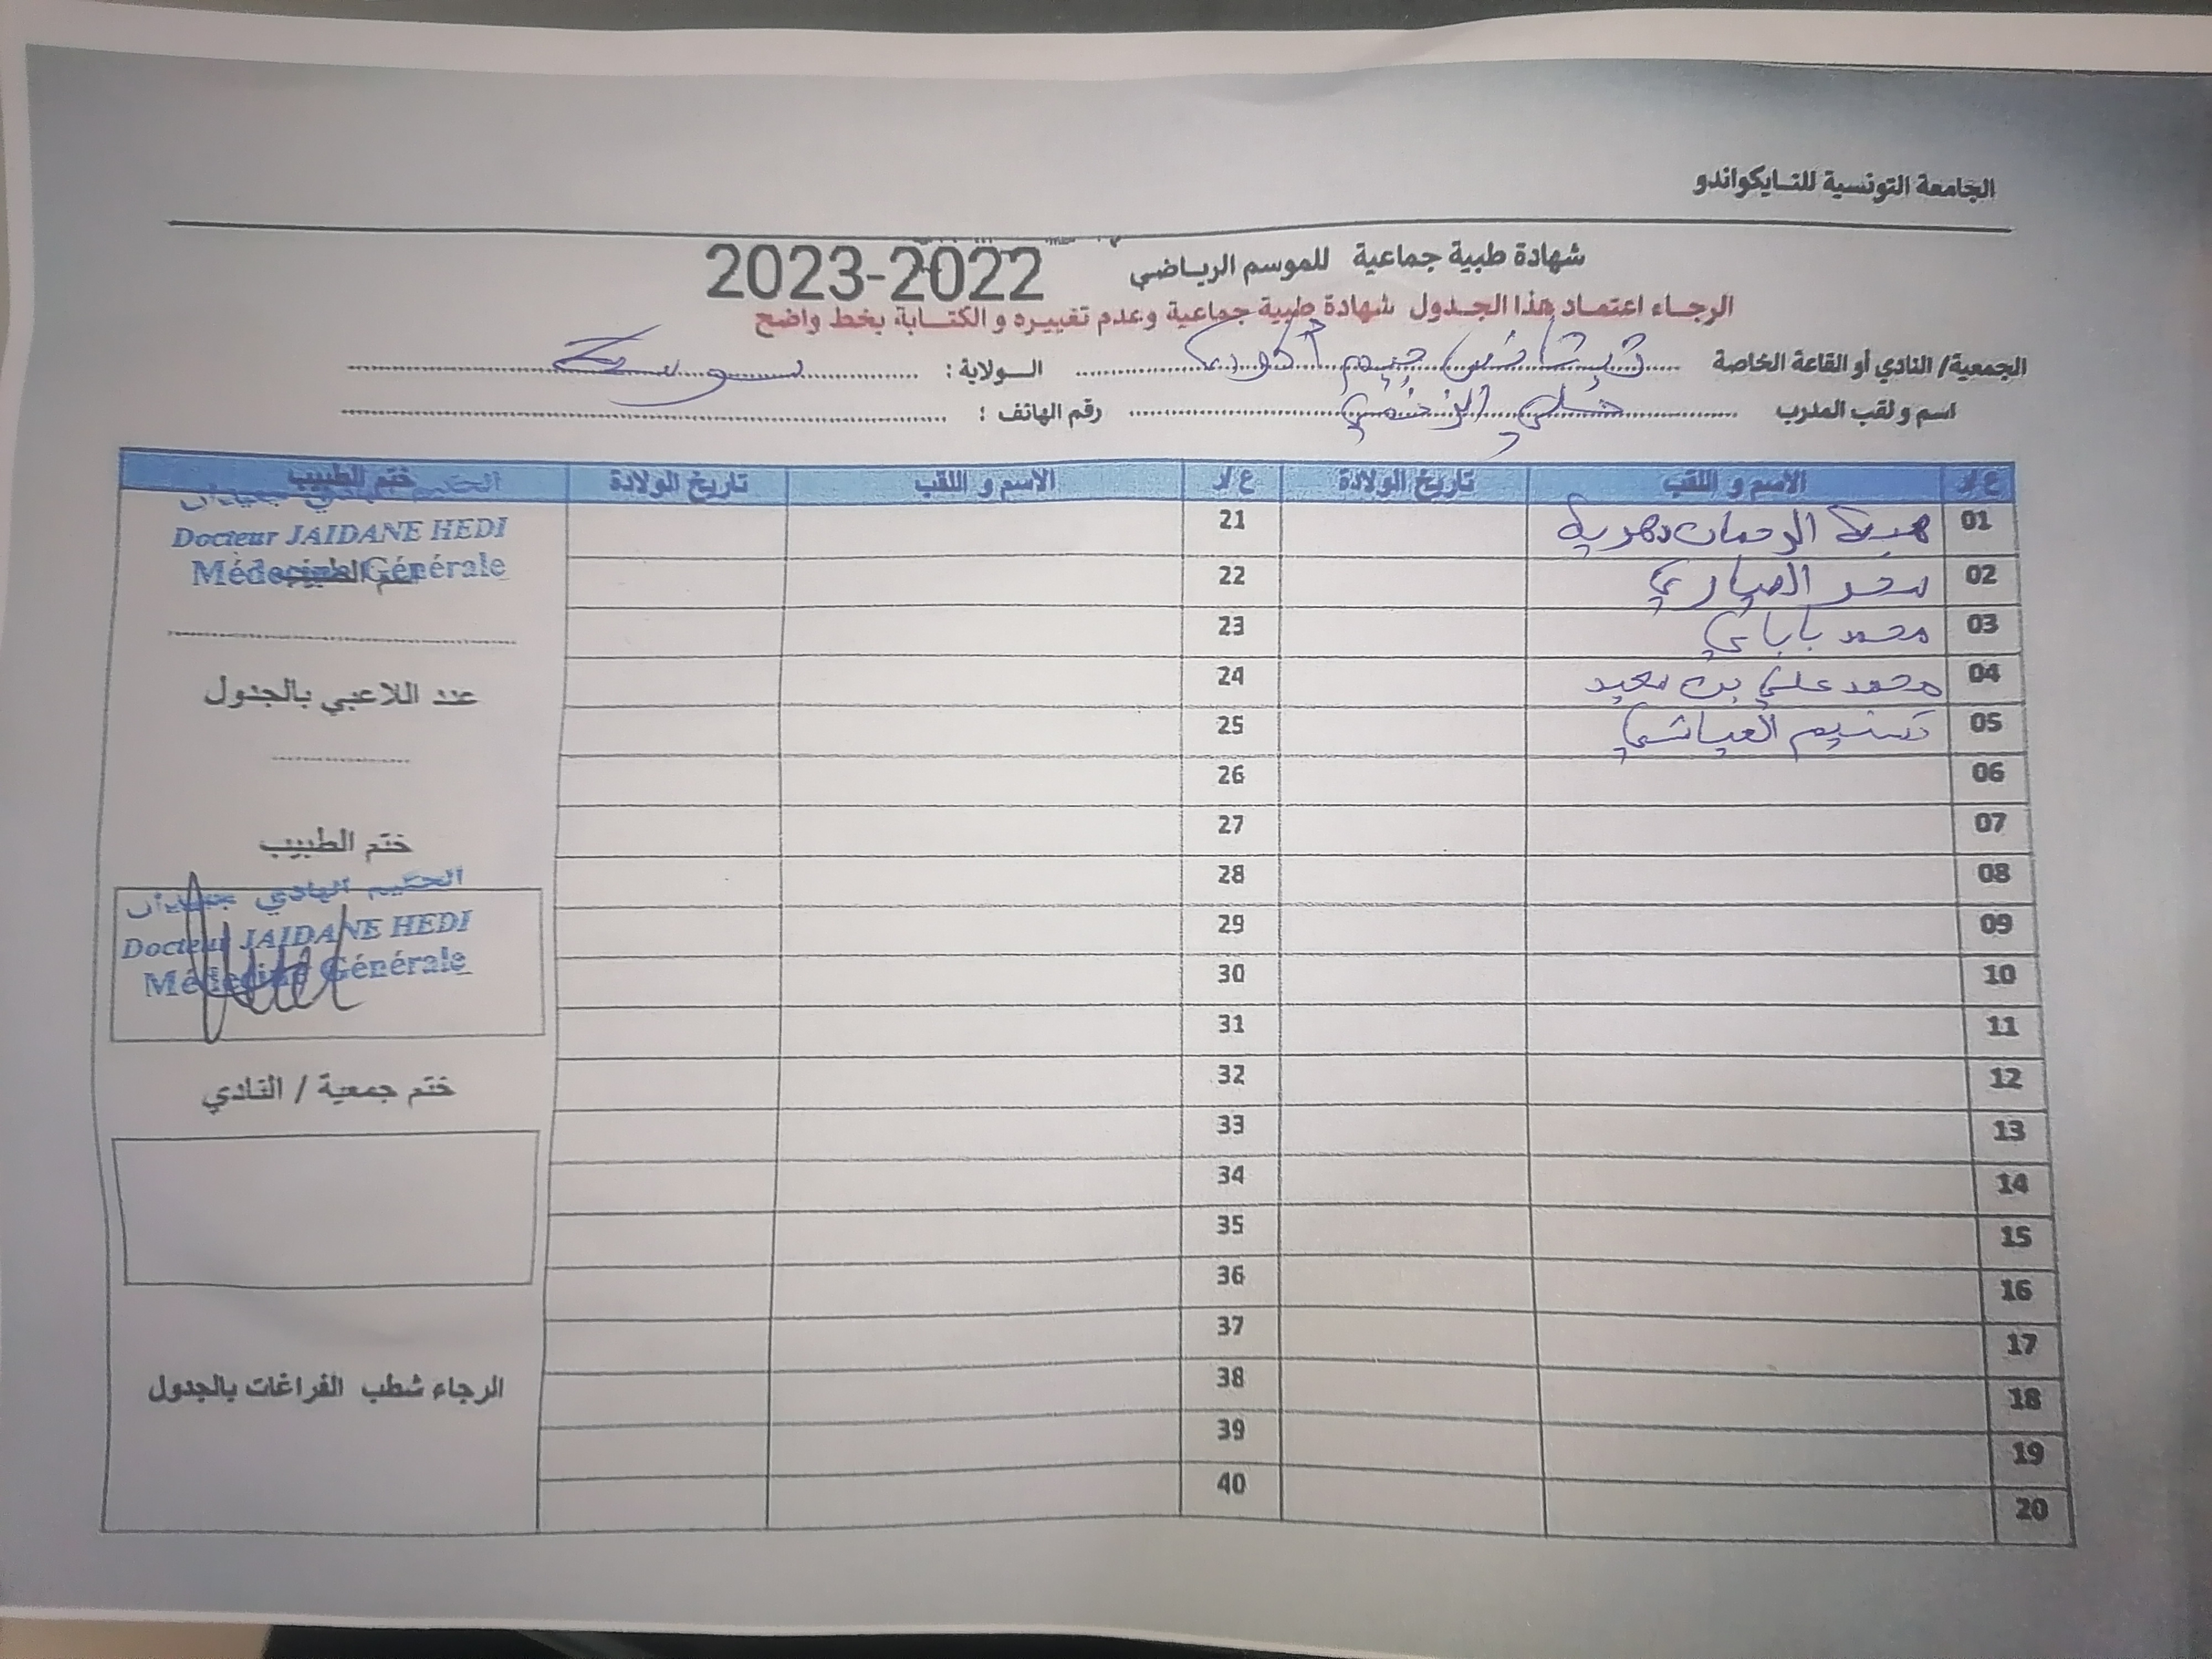 الجامعة التونسية للتايكواندو
شهادة طبية جماعية للموسم الرياضي 2023-2022
الرجاء اعتماد هذا الجدول شهادة طبية جماعية وعدم تغييره و الكتابة بخط واضح
الجمعية/ النادي أو القاعة الخاصة جيم الولاية : سوسة
اسم و لقب المدرب رقم الهاتف :
ع/د الاسم و اللقب تاريخ الولادة ع/د الاسم و اللقب تاريخ الولادة ختم الطبيب
01 هبة الرحمان دهرية 21
02 سحر الصياري 22
03 محمد باباي 23
04 محمد علي بن سعيد 24
05 تسنيم العياشي 25
06 26
07 27
08 28
09 29
10 30
11 31
12 32
13 33
14 34
15 35
16 36
17 37
18 38
19 39
20 40
الحكيم الهادي جعيدان
Docteur JAIDANE HEDI
Médecine Générale
عدد اللاعبي بالجدول
ختم الطبيب
الحكيم الهادي جعيدان
Docteur JAIDANE HEDI
Médecine Générale
ختم جمعية / النادي
الرجاء شطب الفراغات بالجدول